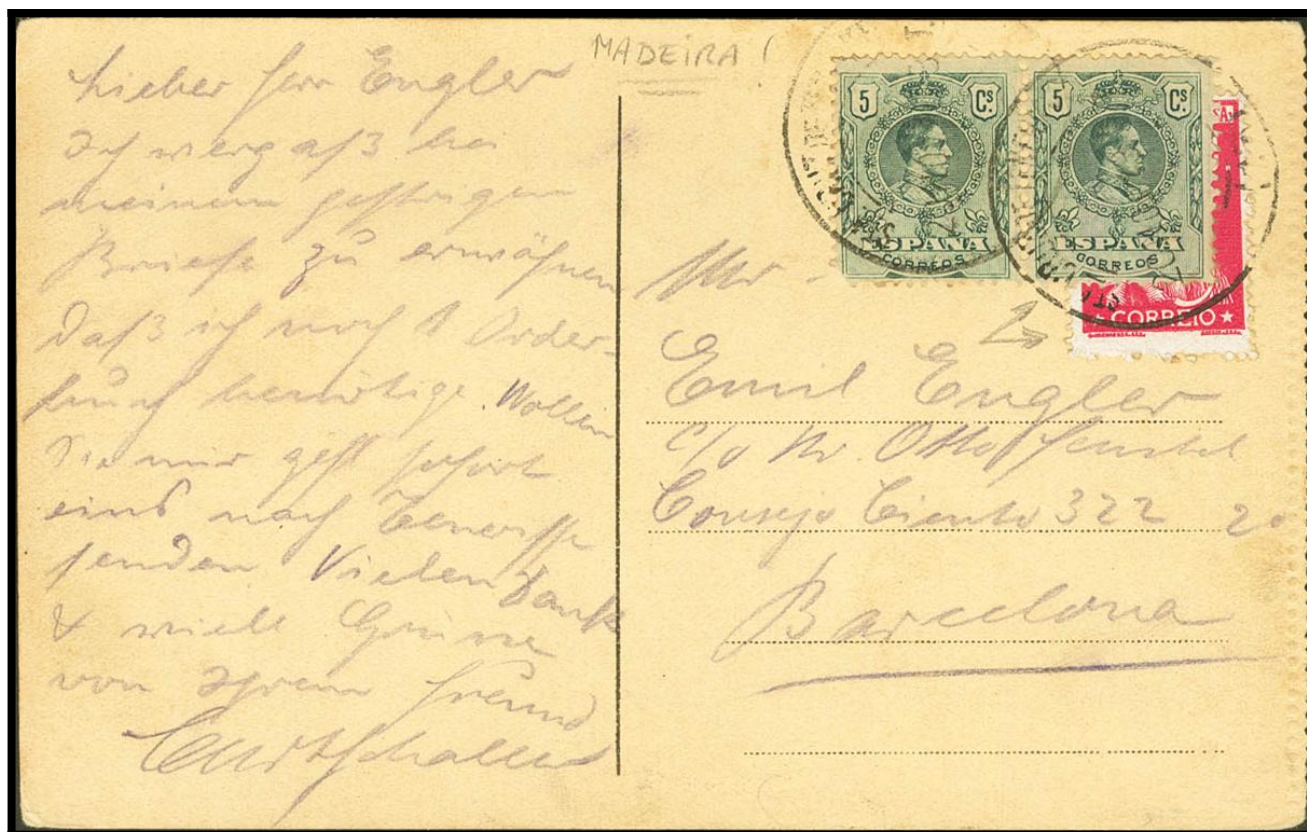 MADEIRA (
Lieber Herr Engler
Ich vergaß bei
meinem gestrigen
Briefe zu erwähnen
daß ich noch 1
benötige. Wollen
Sie mir gefl sofort
eins nach Teneriffe
senden. Vielen Dank
& viele Grüsse
von Ihrem Freund
5 Cs
ESPAÑA
CORREOS
5 Cs
ESPAÑA
CORREOS
★ CORREIO ★
Mr.
Emil Engler
c/o Mr. Otto
Consejo Ciento 322 2º
Barcelona